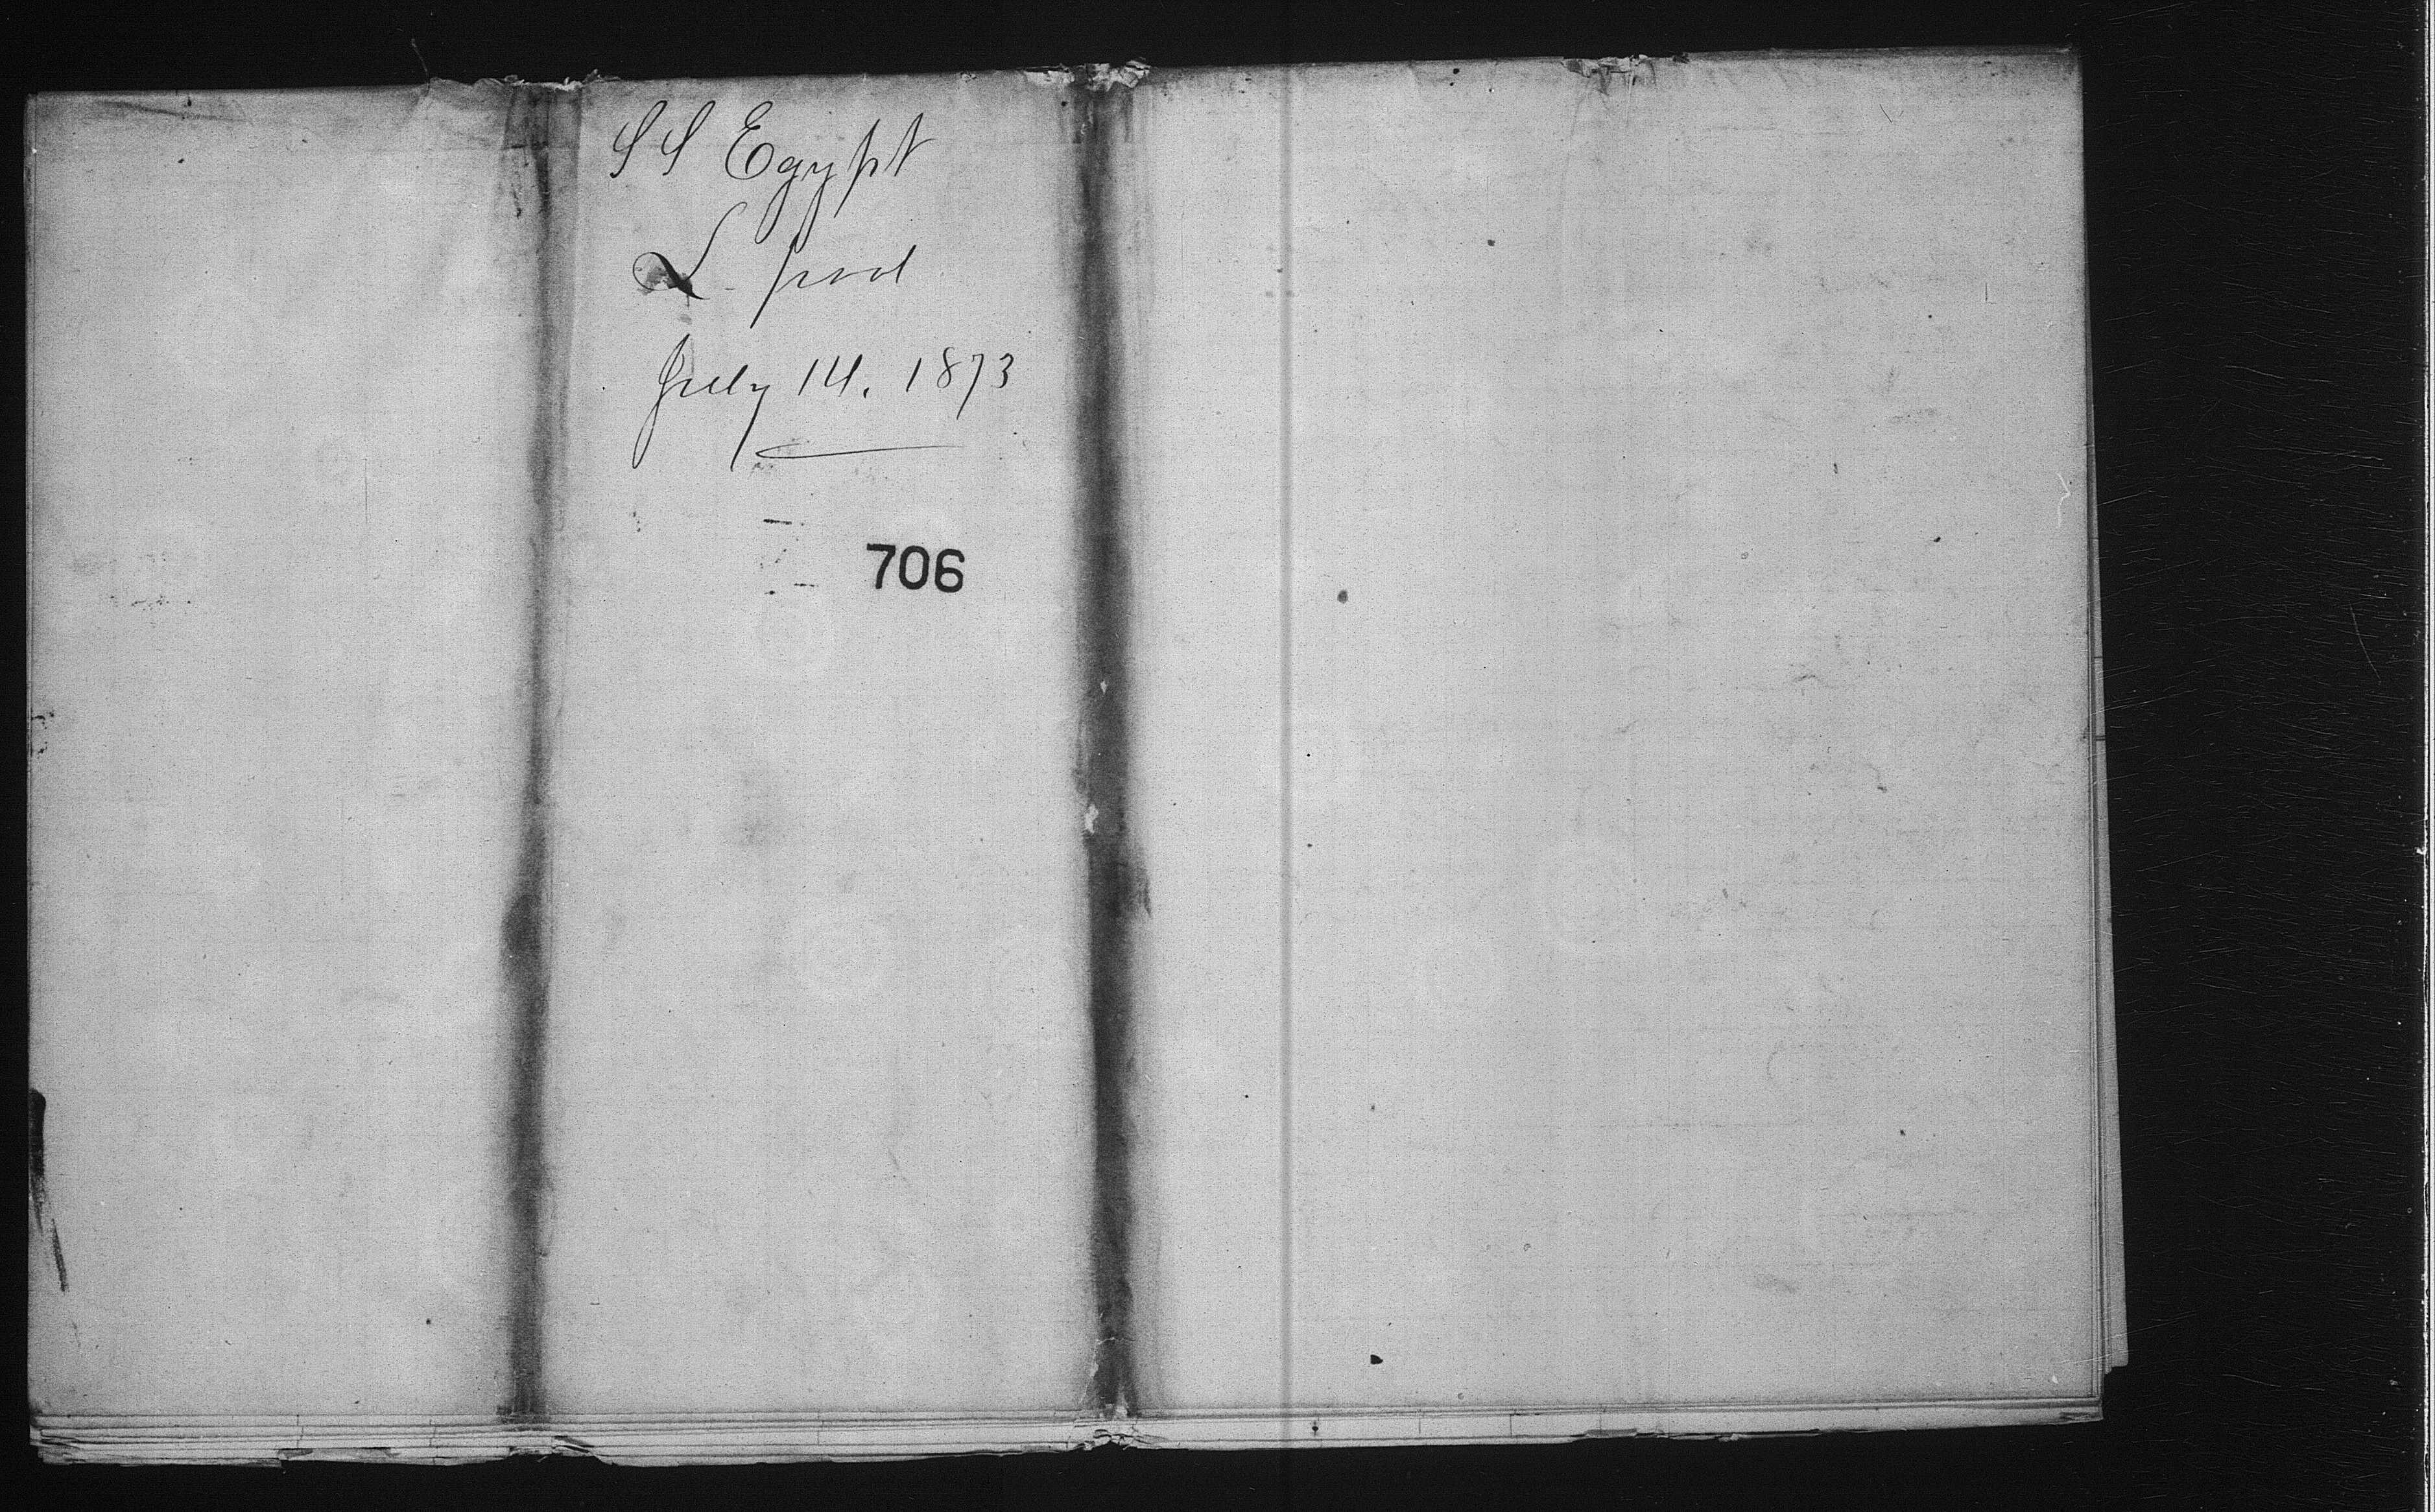 SS Egypt
L-pool
July 14. 1873
706